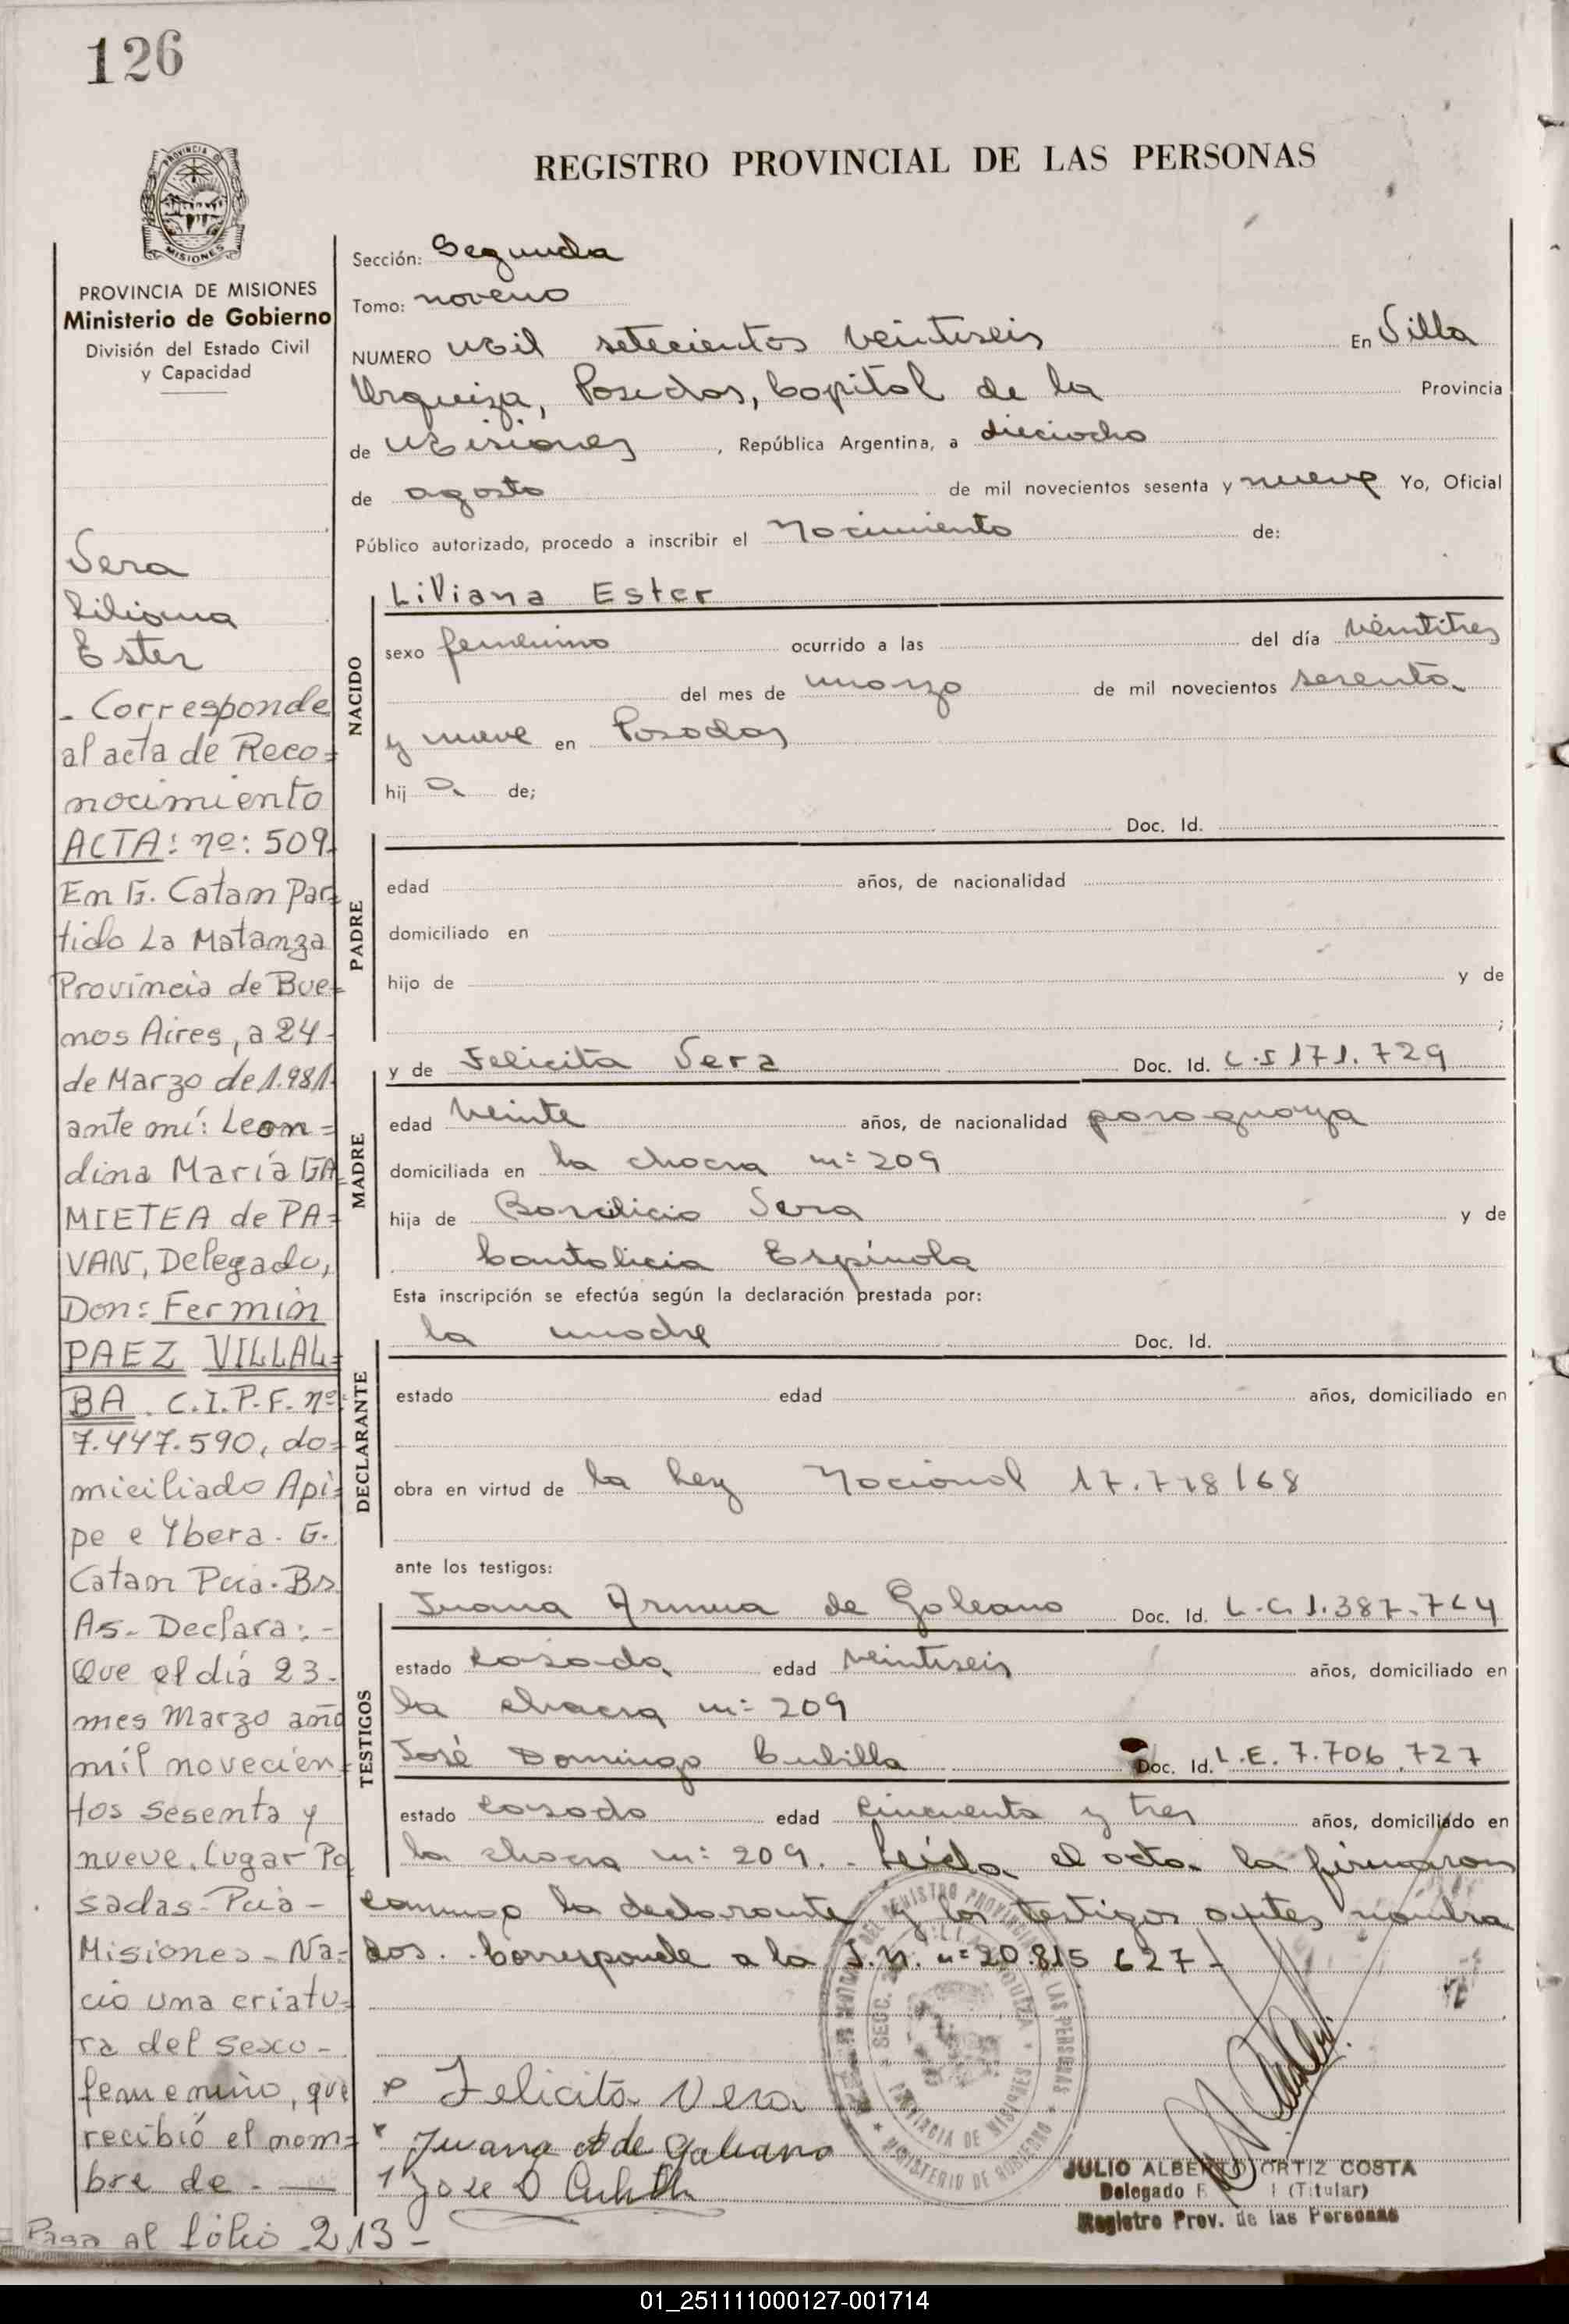 126
PROVINCIA D MISIONES
REGISTRO PROVINCIAL DE LAS PERSONAS
PROVINCIA DE MISIONES
Ministerio de Gobierno
División del Estado Civil
y Capacidad
Vera
Liliana
Ester
- Corresponde
al acta de Reco=
nocimiento
ACTA: nº: 509.
En G. Catam Par=
tido La Matanza
Provincia de Bue-
nos Aires, a 24-
de Marzo de 1.981.
ante mí: Leon=
dina María GA
MIETEA de PA=
VAN, Delegado,
Don: Fermin
PAEZ VILLAL=
BA. C.I.P.F. nº:
7.447.590, do=
miciliado Api=
pe e Ybera. G.
Catan Pcia. Bs
As- Declara: -
Que el día 23-
mes Marzo año
mil novecien=
tos sesenta y
nueve. Lugar Po
sadas- Pcia-
Misiones- Na=
ció una criatu=
ra del sexo-
femenino, que
recibió el nom=
bre de -
Pasa al folio 213-
Sección: Segunda
Tomo: noveno
NUMERO Mil setecientos veintiseis En Villa
Urquiza, Posadas, Capital de la Provincia
de Misiones, República Argentina, a dieciocho
de agosto de mil novecientos sesenta y nueve Yo, Oficial
Público autorizado, procedo a inscribir el Nacimiento de:
NACIDO
Liliana Ester
sexo femenino ocurrido a las del día veintitres
del mes de marzo de mil novecientos sesenta
y nueve en Posadas
hij a de;
PADRE
Doc. Id.
edad años, de nacionalidad
domiciliado en
hijo de y de
;
MADRE
y de Felicita Vera Doc. Id. C.I 171.729
edad veinte años, de nacionalidad paraguaya
domiciliada en la chacra nº 209
hija de Basilicio Vera y de
Cantalicia Espínola
Esta inscripción se efectúa según la declaración prestada por:
DECLARANTE
la madre Doc. Id.
estado edad años, domiciliado en
obra en virtud de la Ley Nacional 17.718/68
ante los testigos:
TESTIGOS
Juana de Galeano Doc. Id. L.C. 1.387.744
estado casada edad veintiseis años, domiciliado en
la chacra nº 209
José Domingo Cubilla Doc. Id. L.E. 7.706.727
estado casado edad cincuenta y tres años, domiciliado en
la chacra nº 209. - Leída el acta la firmaron
conmigo la declarante y los testigos antes nombra
dos. - Corresponde a la nº 20.815 627 -
Felicita Vera
Juana A de Galeano
Jose D Cubilla
JULIO ALBERTO ORTIZ COSTA
Delegado (Titular)
Registro Prov. de las Personas
01_251111000127-001714